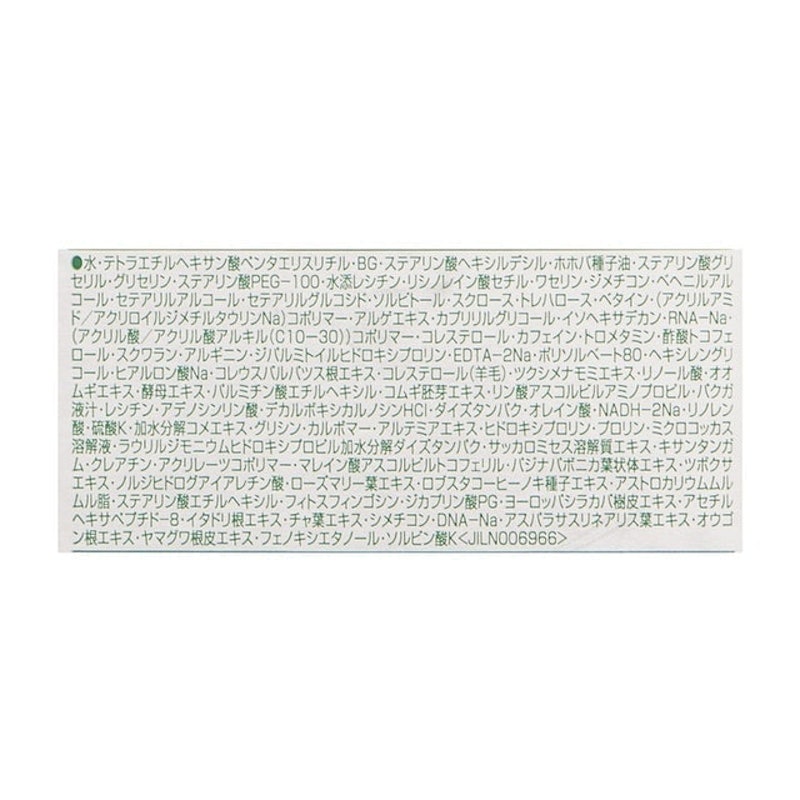 ●水・テトラエチルヘキサン酸ペンタエリスリチル・BG・ステアリン酸ヘキシルデシル・ホホバ種子油・ステアリン酸グリ
セリル・グリセリン・ステアリン酸PEG-100・水添レシチン・リシノレイン酸セチル・ワセリン・ジメチコン・ベヘニルアル
コール・セテアリルアルコール・セテアリルグルコシド・ソルビトール・スクロース・トレハロース・ベタイン・(アクリルアミ
ド/アクリロイルジメチルタウリンNa)コポリマー・アルゲエキス・カプリリルグリコール・イソヘキサデカン・RNA-Na・
(アクリル酸/アクリル酸アルキル(C10-30))コポリマー・コレステロール・カフェイン・トロメタミン・酢酸トコフェ
ロール・スクワラン・アルギニン・ジパルミトイルヒドロキシプロリン・EDTA-2Na・ポリソルベート80・ヘキシレングリ
コール・ヒアルロン酸Na・コレウスバルバツス根エキス・コレステロール(羊毛)・ツクシメナモミエキス・リノール酸・オオ
ムギエキス・酵母エキス・パルミチン酸エチルヘキシル・コムギ胚芽エキス・リン酸アスコルビルアミノプロピル・バクガ
液汁・レシチン・アデノシンリン酸・デカルボキシカルノシンHCl・ダイズタンパク・オレイン酸・NADH-2Na・リノレン
酸・硫酸K・加水分解コメエキス・グリシン・カルボマー・アルテミアエキス・ヒドロキシプロリン・プロリン・ミクロコッカス
溶解液・ラウリルジモニウムヒドロキシプロピル加水分解ダイズタンパク・サッカロミセス溶解質エキス・キサンタンガ
ム・クレアチン・アクリレーツコポリマー・マレイン酸アスコルビルトコフェリル・パジナパボニカ葉状体エキス・ツボクサ
エキス・ノルジヒドログアイアレチン酸・ローズマリー葉エキス・ロブスタコーヒーノキ種子エキス・アストロカリウムムル
ムル脂・ステアリン酸エチルヘキシル・フィトスフィンゴシン・ジカプリン酸PG・ヨーロッパシラカバ樹皮エキス・アセチル
ヘキサペプチド-8・イタドリ根エキス・チャ葉エキス・シメチコン・DNA-Na・アスパラサスリネアリス葉エキス・オウゴ
ン根エキス・ヤマグワ根皮エキス・フェノキシエタノール・ソルビン酸K<JILN006966>